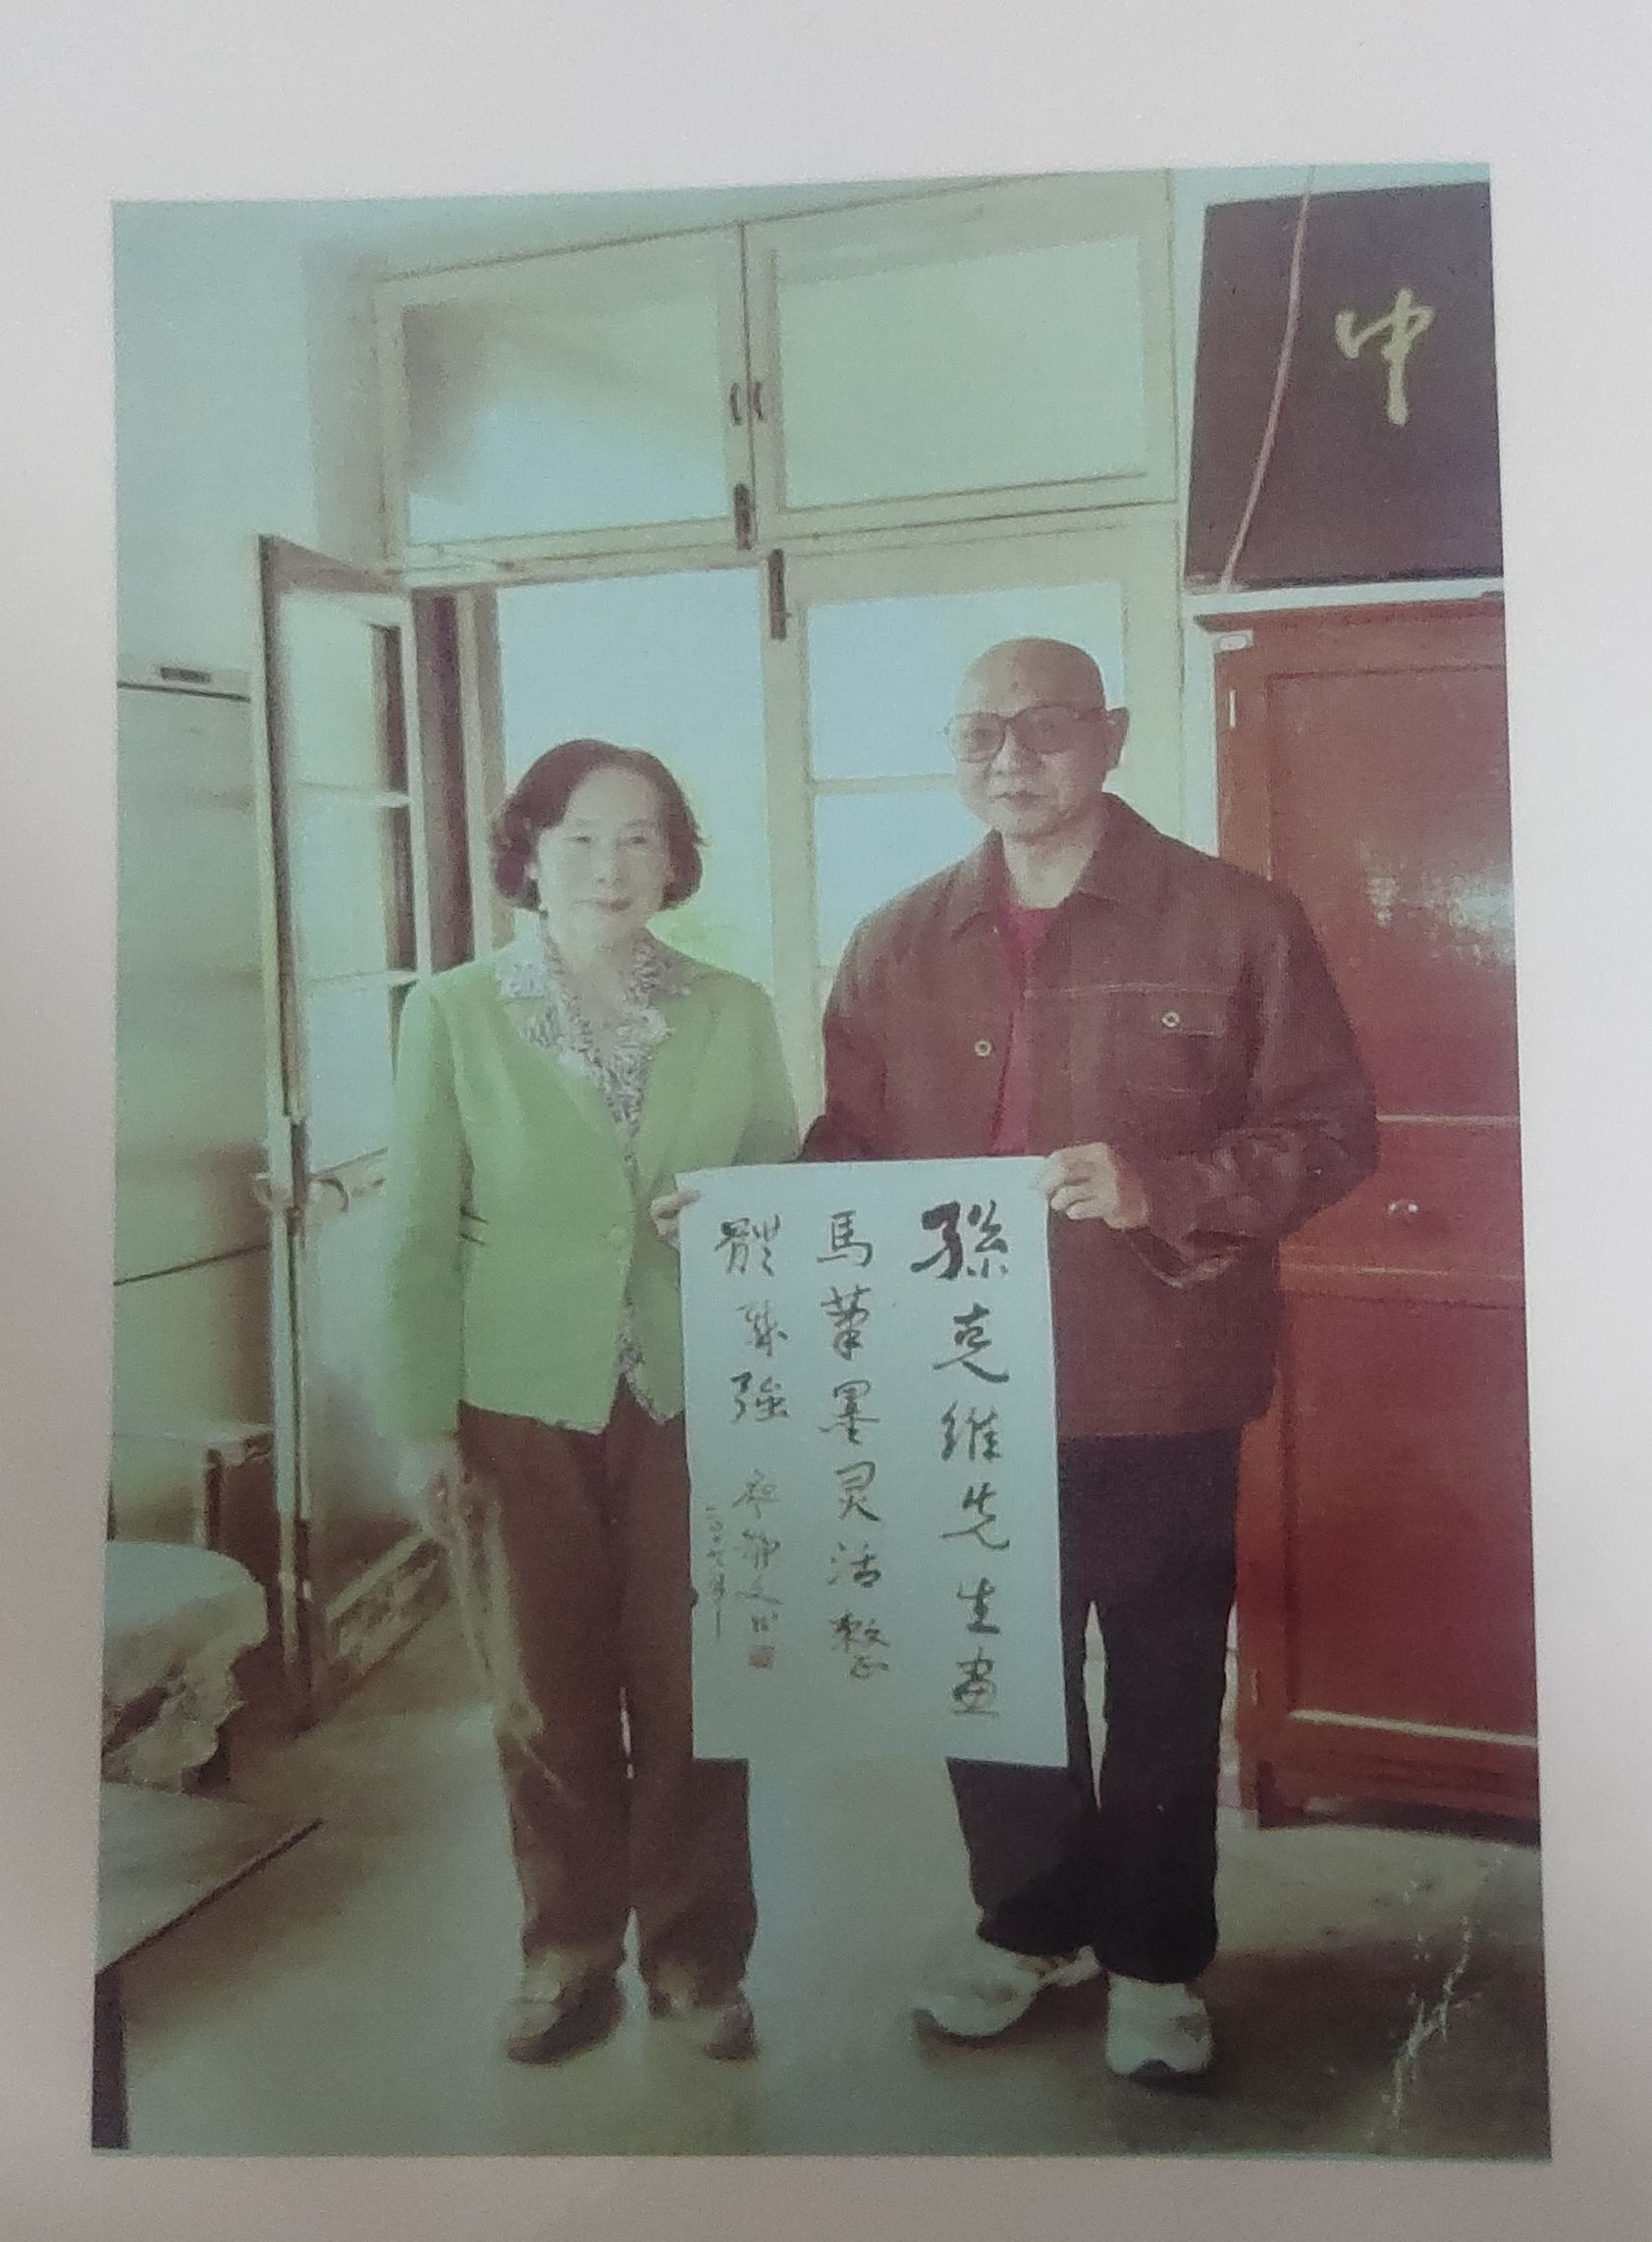 中
孫克維先生畫
馬筆墨灵活整
體感強 廖静文
二〇〇七年